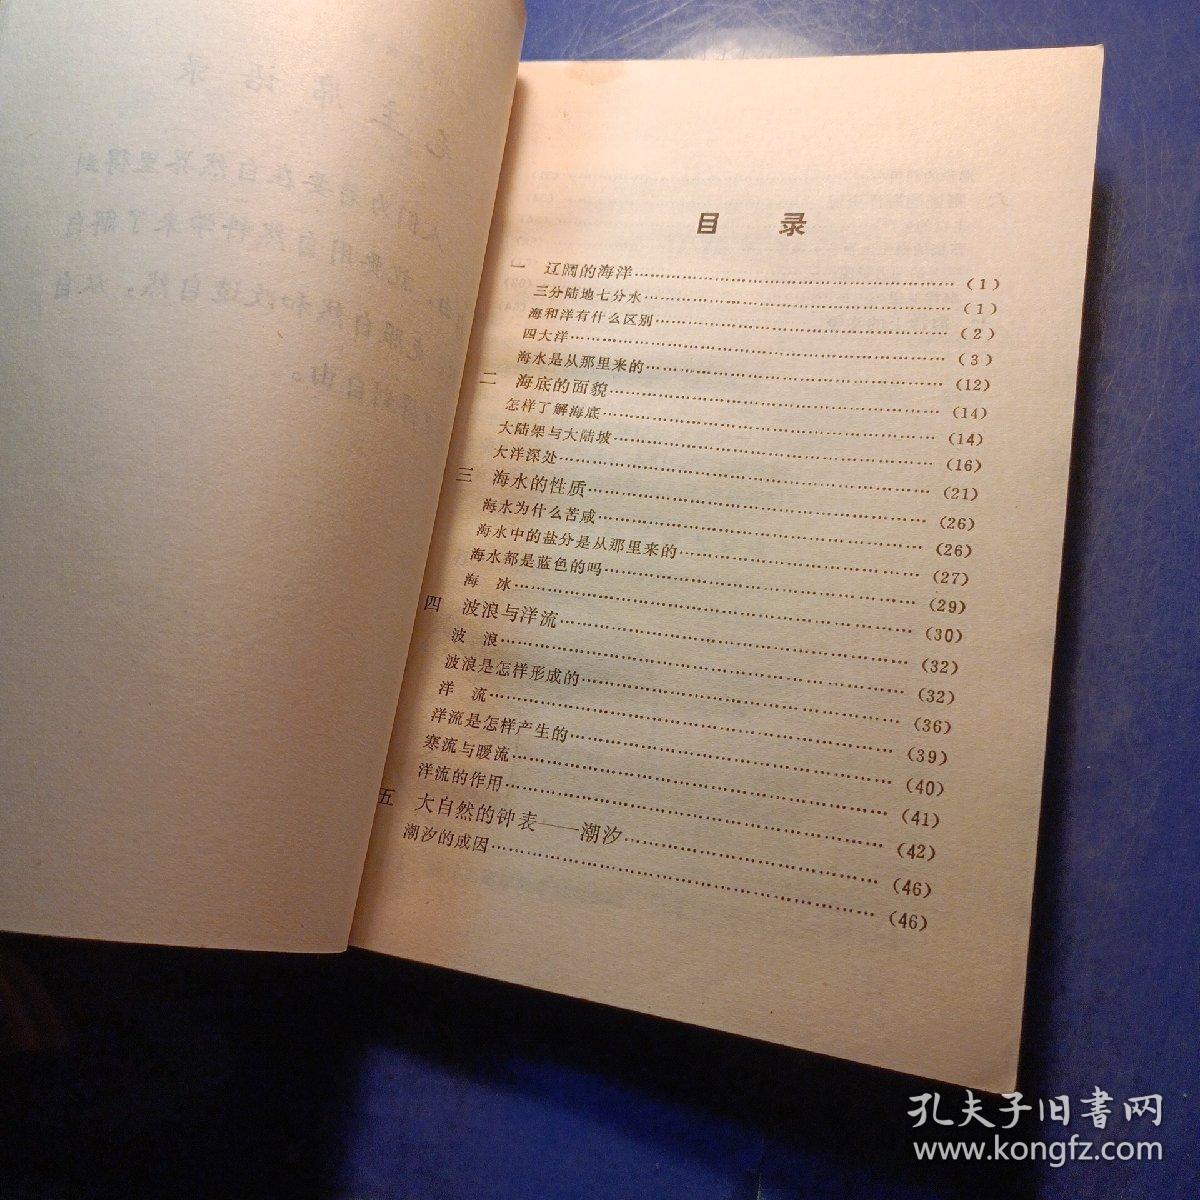 目 录
一 辽阔的海洋……(1)
三分陆地七分水……(1)
海和洋有什么区别……(2)
四大洋……(3)
海水是从那里来的……(12)
二 海底的面貌……(14)
怎样了解海底……(14)
大陆架与大陆坡……(16)
大洋深处……(21)
三 海水的性质……(26)
海水为什么苦咸……(26)
海水中的盐分是从那里来的……(27)
海水都是蓝色的吗……(29)
海 冰……(30)
四 波浪与洋流……(32)
波 浪……(32)
波浪是怎样形成的……(36)
洋 流……(39)
洋流是怎样产生的……(40)
寒流与暖流……(41)
洋流的作用……(42)
五 大自然的钟表——潮汐……(46)
潮汐的成因……(46)
孔夫子旧書网
www.kongfz.com